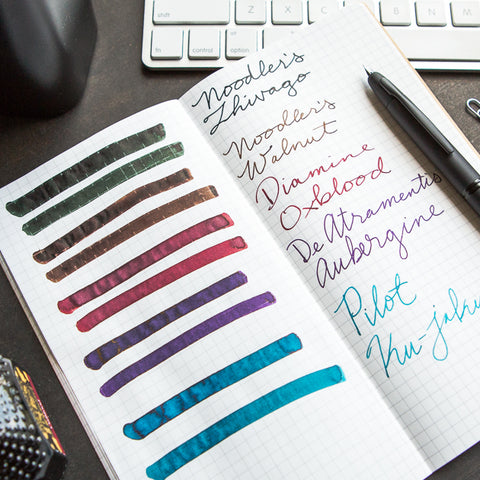 fn
control
option
Noodler's
Zhivago
Noodler's
Walnut
Diamine
Oxblood
De Atramentis
Aubergine
Pilot